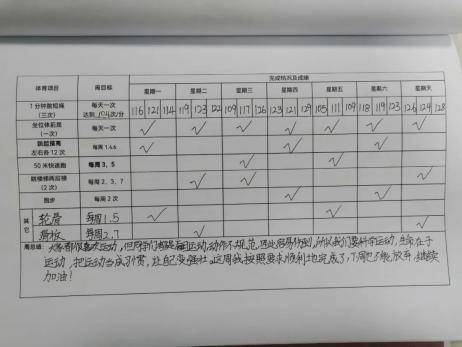 体育项目 周目标 完成情况及成绩
星期一 星期二 星期三 星期四 星期五 星期六 星期天
1分钟跳短绳（三次） 每天一次 达到 104次/分 116 121 114 119 123 122 109 117 126 123 121 129 105 111 109 118 119 123 126 124 128
坐位体前屈（一次） 每天一次 ✓ ✓ ✓ ✓ ✓ ✓ ✓
跳起摸高 左右各12次 每周1.4.6 ✓ ✓ ✓
50米快速跑 每周3、5 ✓ ✓
（2次） 每周2、3、7 ✓ ✓ ✓
跑步 每周2次 ✓ ✓
其它 轮滑 每周1.5 ✓ ✓
滑板 每周2.7 ✓ ✓
周总结：大家都很喜欢运动，但同学们运动动作不规范，因此容易伤到，所以我们要科学运动，生命在于
运动，把运动当成习惯，让自己变强壮。这周我按照要求顺利地完成了，下周也不能放弃，继续
加油！